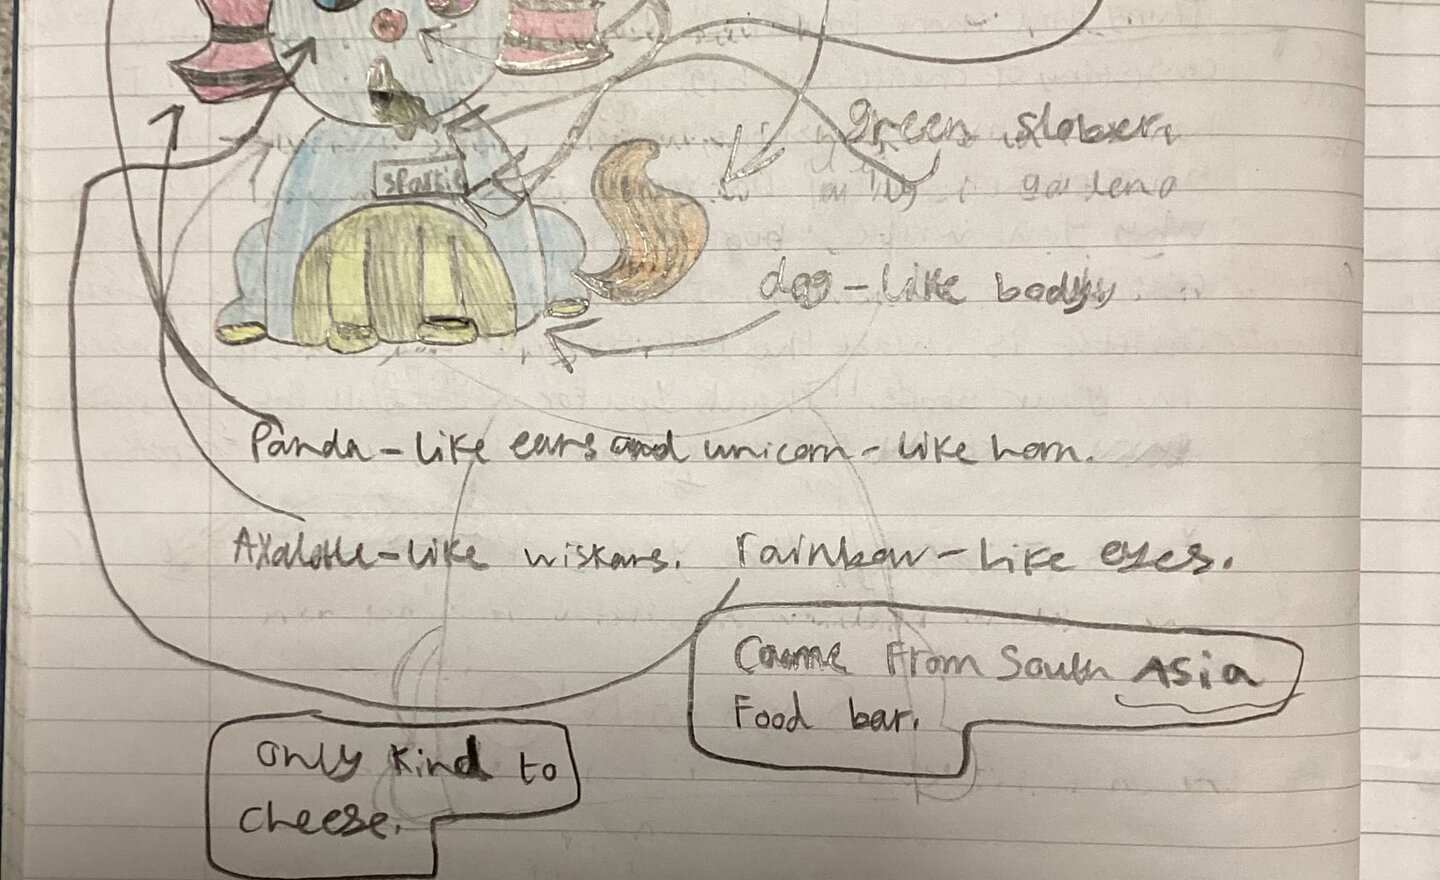 green slober,
sparkie
dog-like body
Panda-like ears and unicorn-like horn.
Axalotle-like wiskars. rainbow-like eyes.
Came From South Asia
Food bar.
only kind to
cheese.